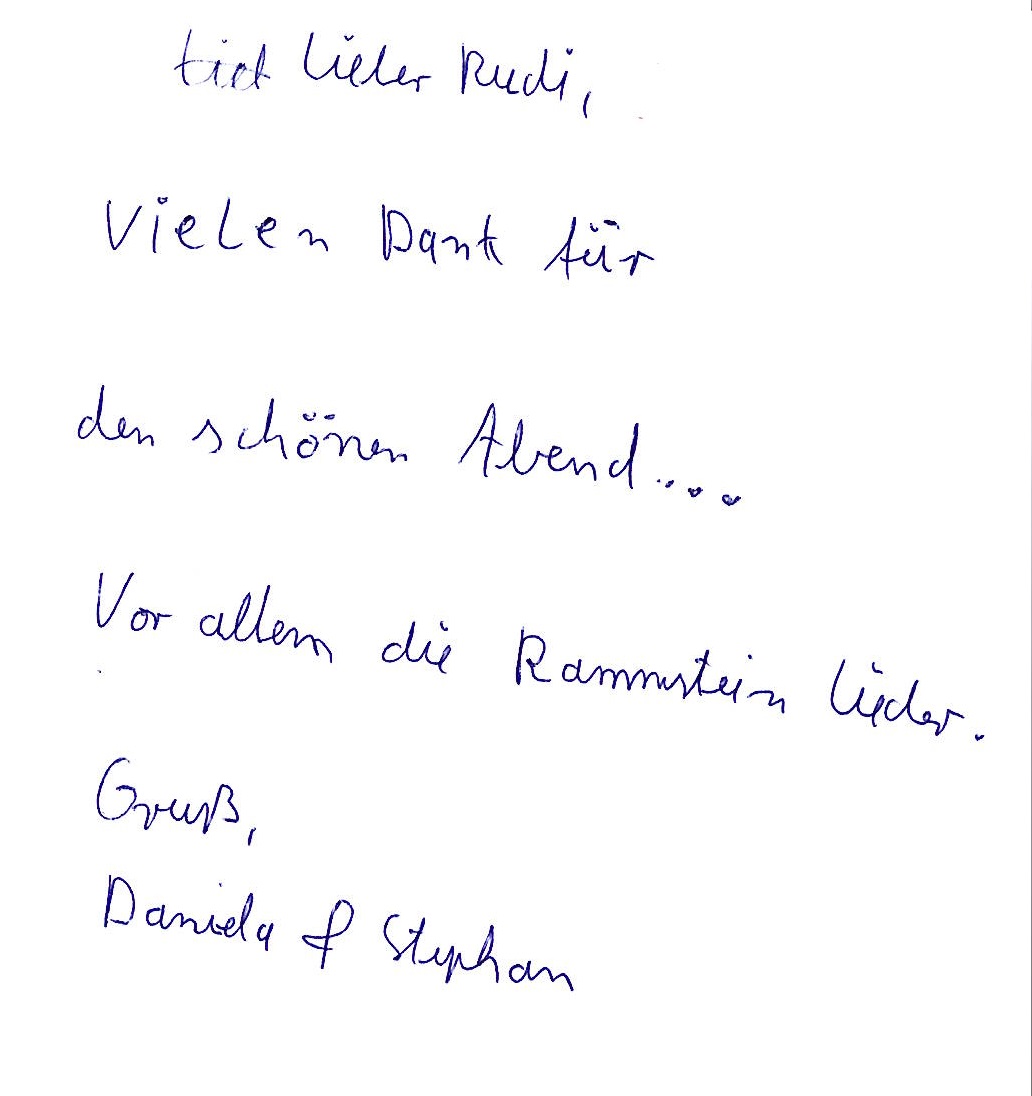 Lieber Rudi,
Vielen Dank für
den schönen Abend....
Vor allem die Rammstein Lieder.
Gruß,
Daniela & Stephan